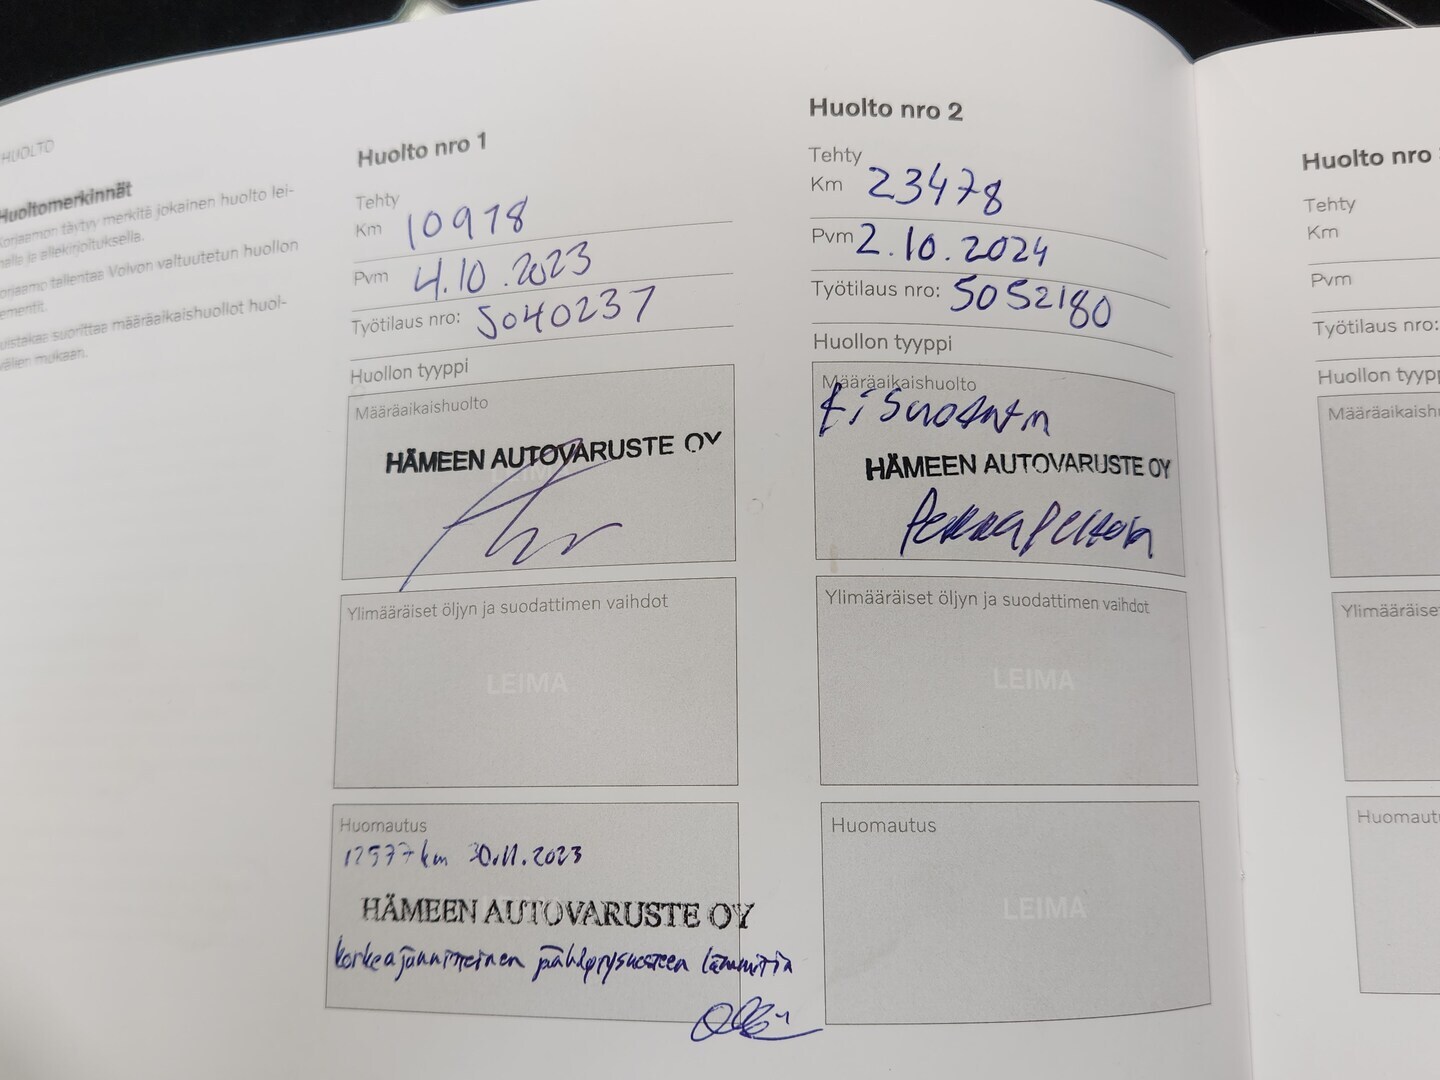 HUOLTO
Huoltomerkinnät
Korjaamon täytyy merkitä jokainen huolto lei-
malla ja allekirjoituksella.
Korjaamo tallentaa Volvon valtuutetun huollon
suorittaa määräaikaishuollot huol-
mukaan.
Huolto nro 1
Tehty
Km 10978
Pvm 4.10.2023
Työtilaus nro: 5040237
Huollon tyyppi
Määräaikaishuolto
HÄMEEN AUTOVARUSTE OY
Ylimääräiset öljyn ja suodattimen vaihdot
LEIMA
Huomautus
12577 km 30.11.2023
HÄMEEN AUTOVARUSTE OY
korkeajännitteinen lämmitin
Huolto nro 2
Tehty
Km 23478
Pvm 2.10.2024
Työtilaus nro: 5052180
Huollon tyyppi
Määräaikaishuolto
HÄMEEN AUTOVARUSTE OY
Ylimääräiset öljyn ja suodattimen vaihdot
LEIMA
Huomautus
LEIMA
Huolto nro
Tehty
Km
Pvm
Työtilaus nro:
Huollon tyypp
Määräaikaish
Ylimääräise
Huomaut